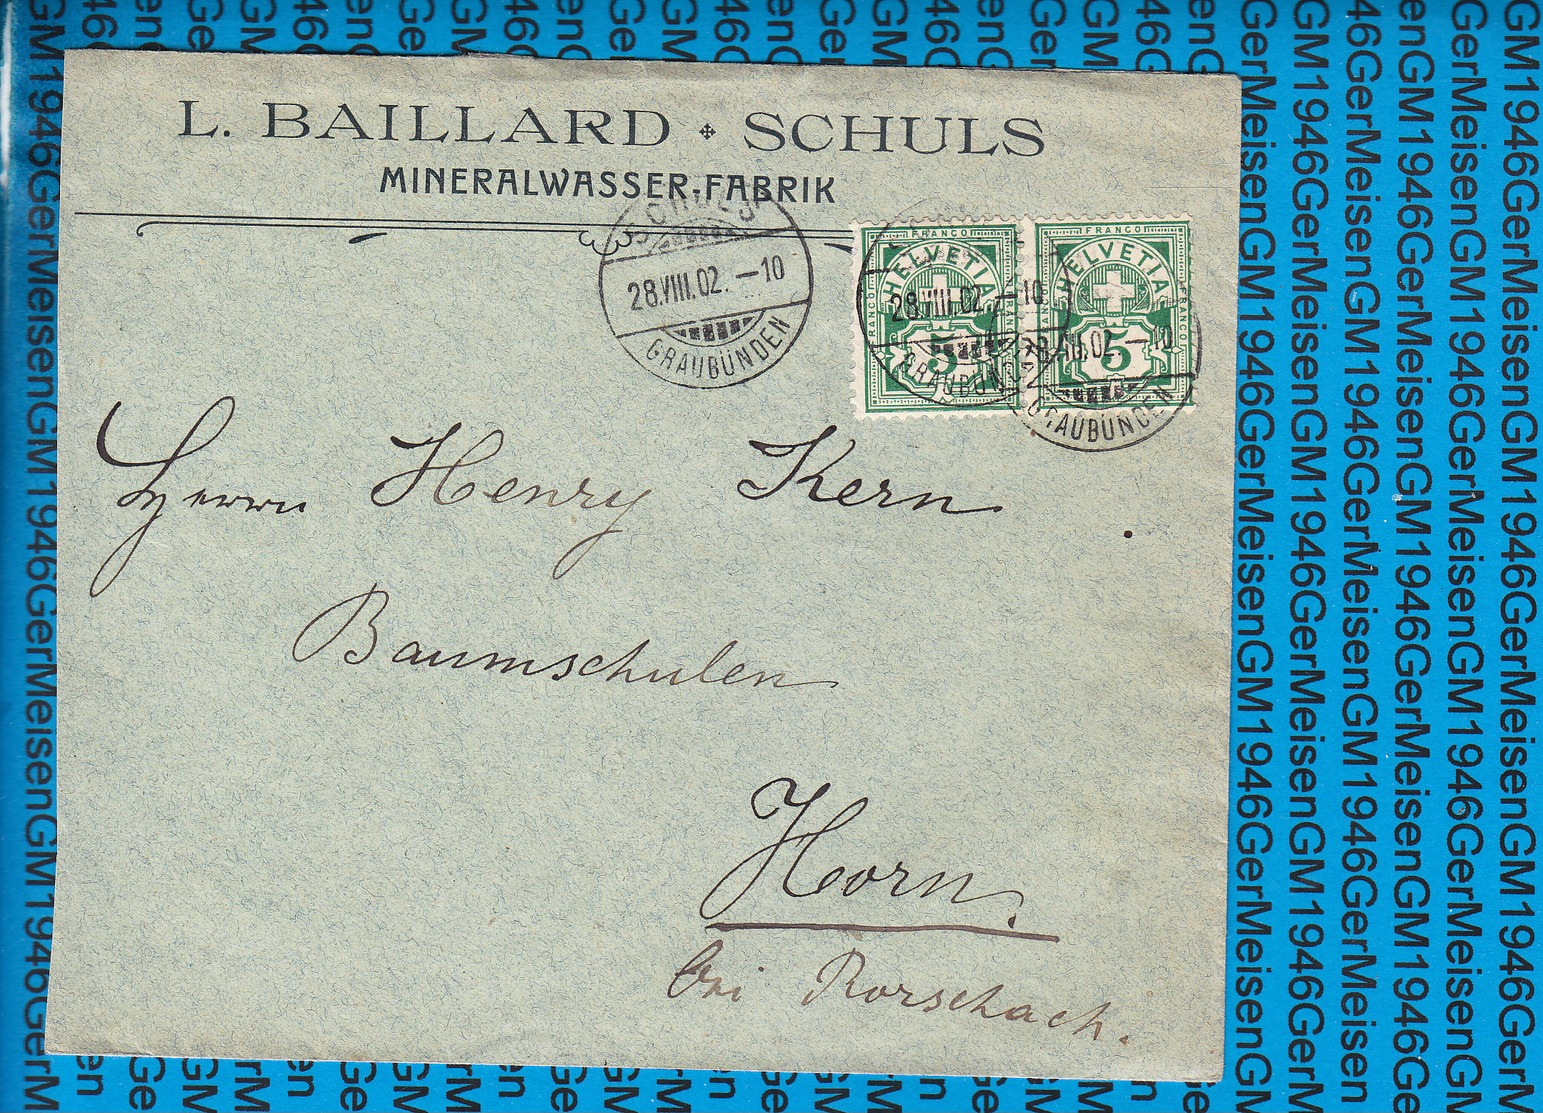 L. BAILLARD SCHULS
MINERALWASSER-FABRIK
SCHULS
28.VIII.02. –10
GRAUBÜNDEN
FRANCO FRANCO
HELVETIA HELVETIA
FRANCO FRANCO
28.VIII.02. –10
28.VIII.02. –10
5 5
GRAUBÜNDEN
GRAUBÜNDEN
Herrn Henry Kern
Baumschulen
Horn.
bei Rorschach.
GM1946GerMeisenGM1946GerMeisenGM1946GerMeisen